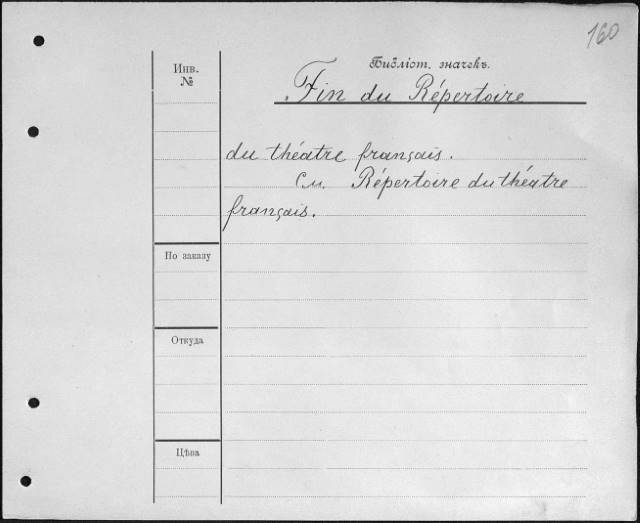 160
Инв.
№
Библіот. значекъ.
Fin du Répertoire
du théatre français.
См. Répertoire du théatre
français.
По заказу
Откуда
Цѣна